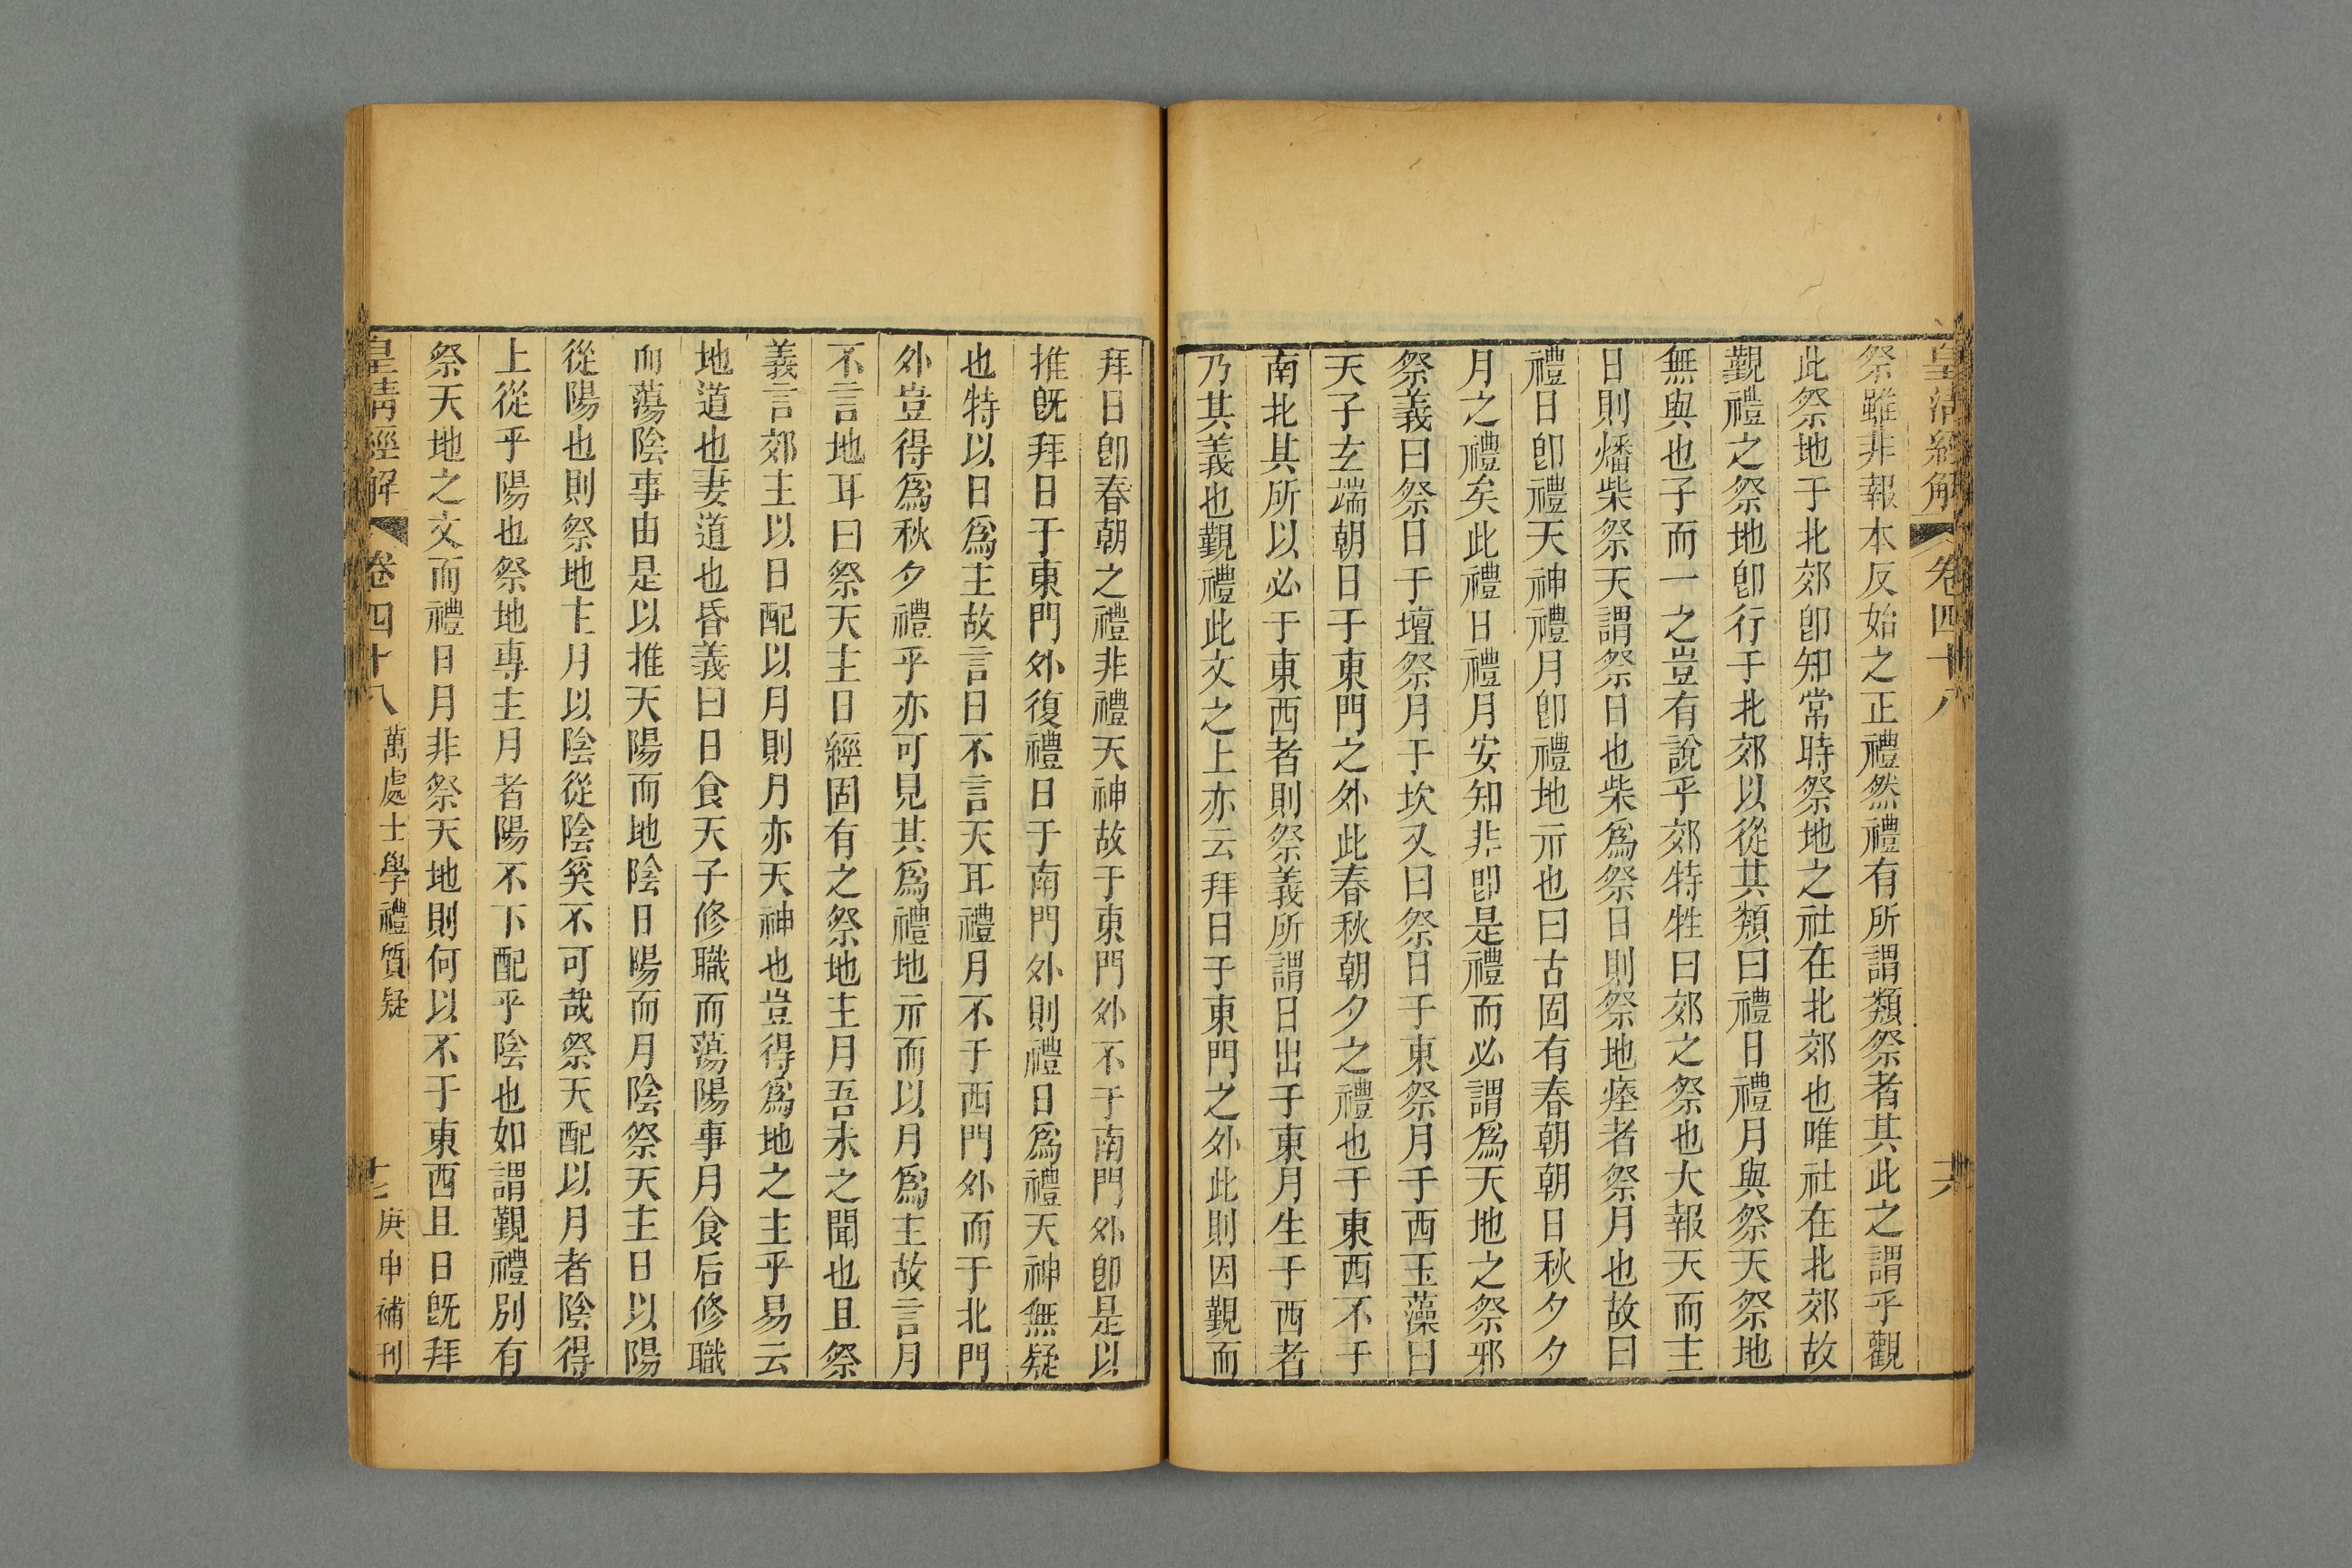 皇清經解 卷四十八 六
祭雖非報本反始之正禮然禮有所謂類祭者其此之謂乎觀
此祭地于北郊卽知常時祭地之社在北郊也唯社在北郊故
覲禮之祭地卽行于北郊以從其類曰禮日禮月與祭天祭地
無與也子而一之豈有說乎郊特牲曰郊之祭也大報天而主
日則燔柴祭天謂祭日也柴爲祭日則祭地瘞者祭月也故曰
禮日卽禮天神禮月卽禮地示也曰古固有春朝朝日秋夕夕
月之禮矣此禮日禮月安知非卽是禮而必謂爲天地之祭邪
祭義曰祭日于壇祭月于坎又曰祭日于東祭月于西玉藻曰
天子玄端朝日于東門之外此春秋朝夕之禮也于東西不于
南北其所以必于東西者則祭義所謂日出于東月生于西者
乃其義也覲禮此文之上亦云拜日于東門之外此則因覲而
拜日卽春朝之禮非禮天神故于東門外不于南門外卽是以
推旣拜日于東門外復禮日于南門外則禮日爲禮天神無疑
也特以日爲主故言日不言天耳禮月不于西門外而于北門
外豈得爲秋夕禮乎亦可見其爲禮地示而以月爲主故言月
不言地耳曰祭天主日經固有之祭地主月吾未之聞也且祭
義言郊主以日配以月則月亦天神也豈得爲地之主乎易云
地道也妻道也昏義曰日食天子修職而蕩陽事月食后修職
而蕩陰事由是以推天陽而地陰日陽而月陰祭天主日以陽
從陽也則祭地主月以陰從陰奚不可哉祭天配以月者陰得
上從乎陽也祭地專主月者陽不下配乎陰也如謂覲禮別有
祭天地之文而禮日月非祭天地則何以不于東西且日旣拜
皇清經解 卷四十八 萬處士學禮質疑 七 庚申補刊